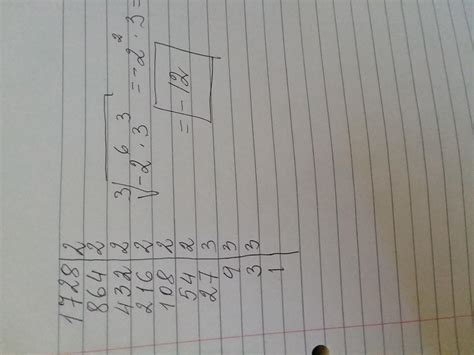 1728 | 2
864 | 2
432 | 2
216 | 2
108 | 2
54 | 2
27 | 3
9 | 3
3 | 3
1 |
∛-2⁶ · 3³ = -2² · 3 =
= -12